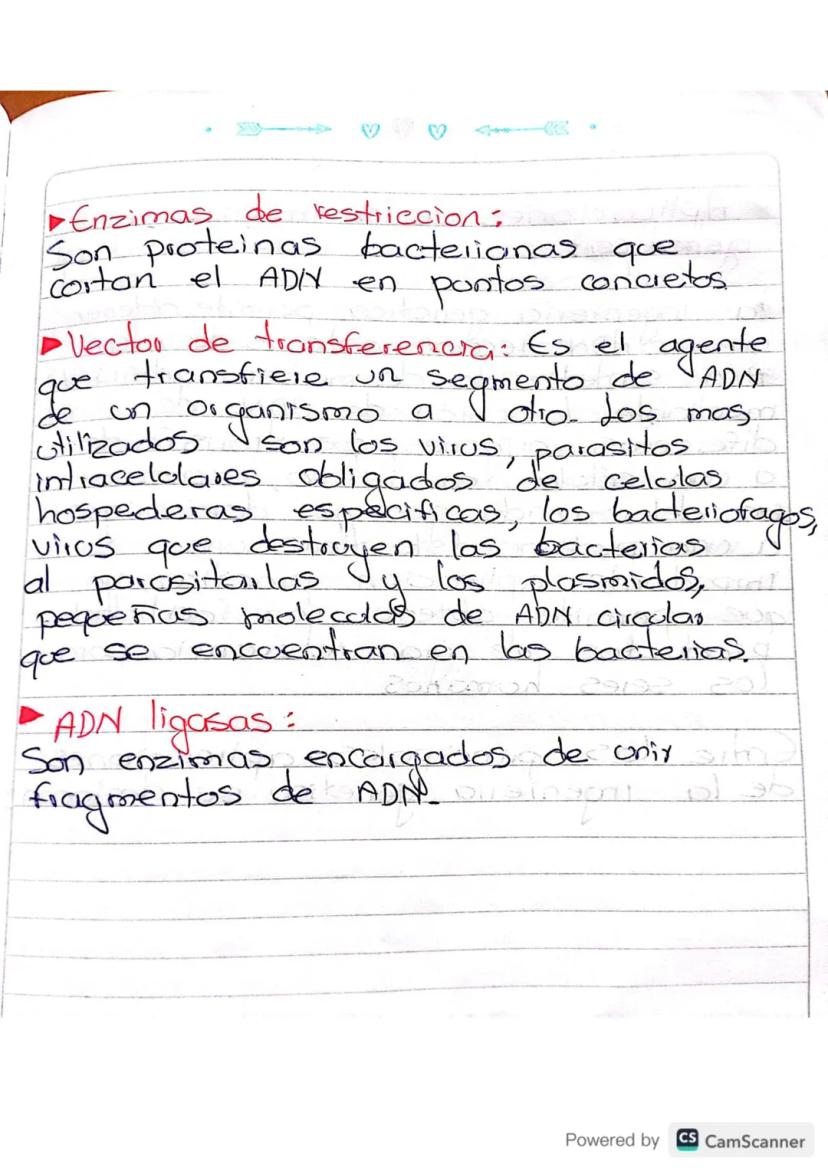 ▶Enzimas de restriccion:
Son proteinas bacterianas que
cortan el ADN en puntos concretos
▶Vector de transferencia: Es el agente
que transfiere un segmento de ADN
de un organismo a otro. Los mas
utilizados son los virus, parasitos
intracelulares obligados de celulas
hospederas especificas, los bacteriofagos,
virus que destruyen las bacterias
al parasitarlas y los plasmidos,
pequeñas moleculas de ADN circular
que se encuentran en las bacterias.
▶ ADN ligasas:
Son enzimas encargados de unir
fragmentos de ADN.
Powered by CS CamScanner